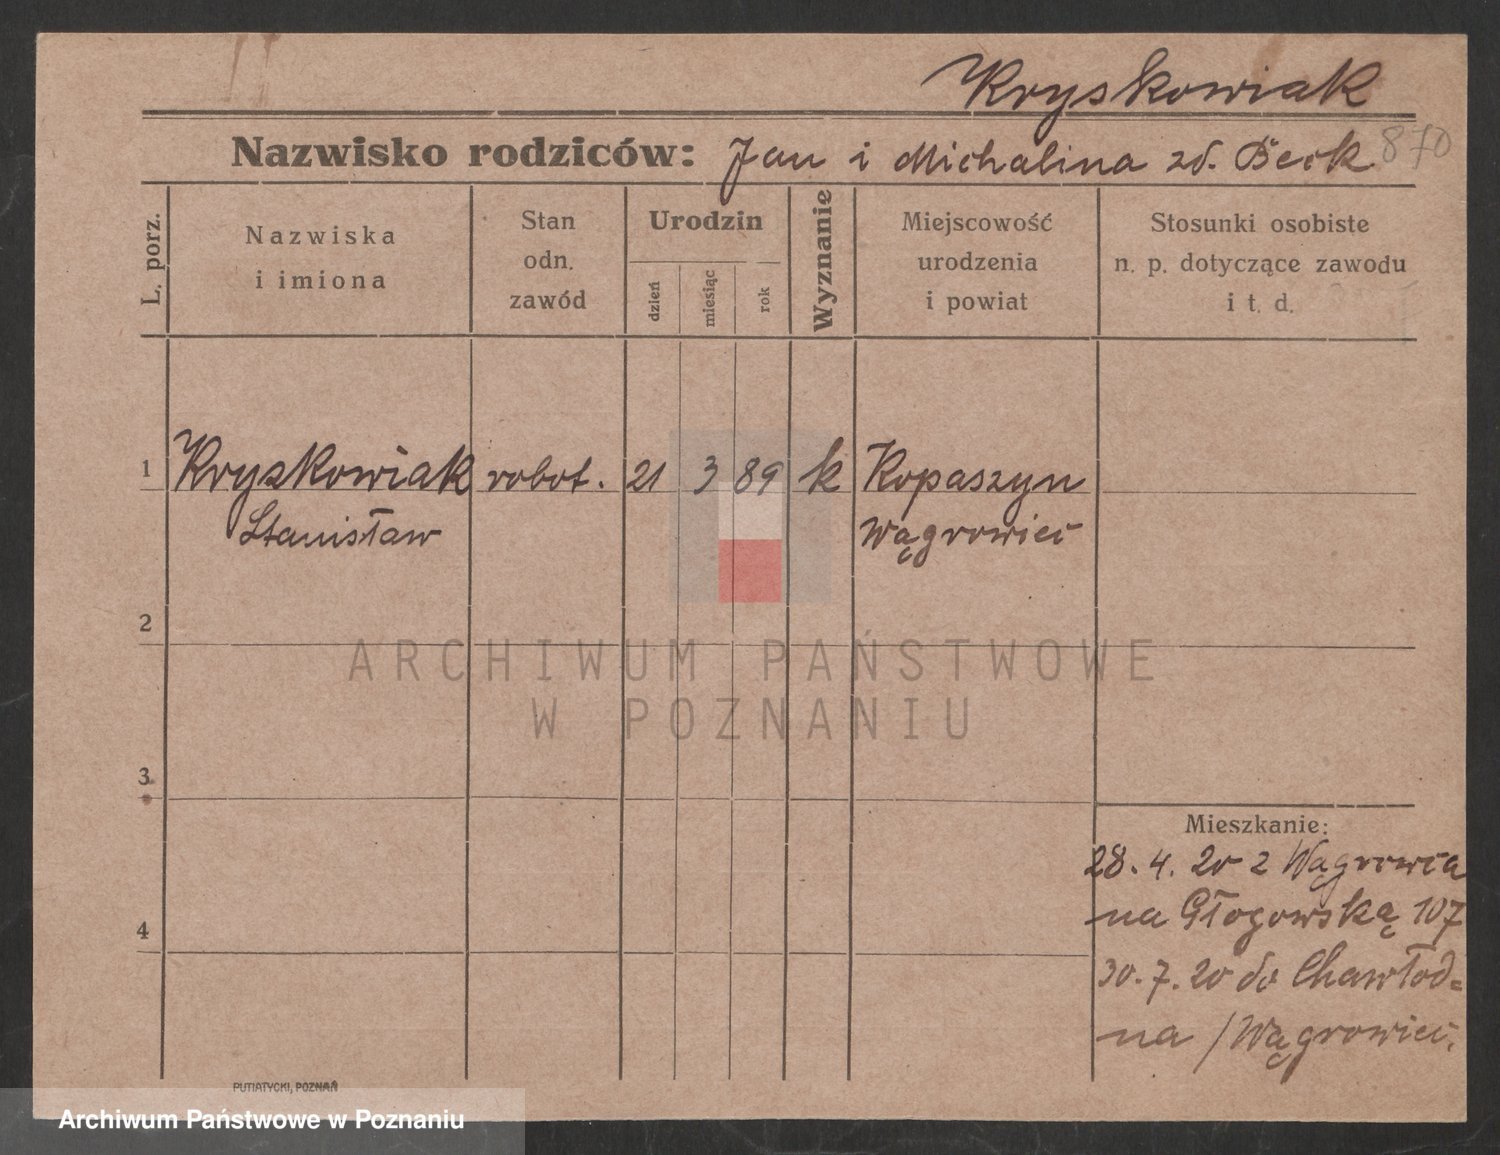 Kryskowiak
870
Nazwisko rodziców: Jan i Michalina zd. Beck
L. porz.
Nazwiska
i imiona
Stan
odn.
zawód
Urodzin
dzień
miesiąc
rok
Wyznanie
Miejscowość
urodzenia
i powiat
Stosunki osobiste
n. p. dotyczące zawodu
i t. d.
1 Kryskowiak robot. 21 3 89 k Kopaszyn
Stanisław Wągrowiec
2
ARCHIWUM PAŃSTWOWE
W POZNANIU
3
Mieszkanie:
28. 4. 20 z Wągrowca
na Głogowską 107
4
30. 7. 20 do Chawłod=
na / Wągrowiec.
PUTIATYCKI, POZNAŃ
Archiwum Państwowe w Poznaniu